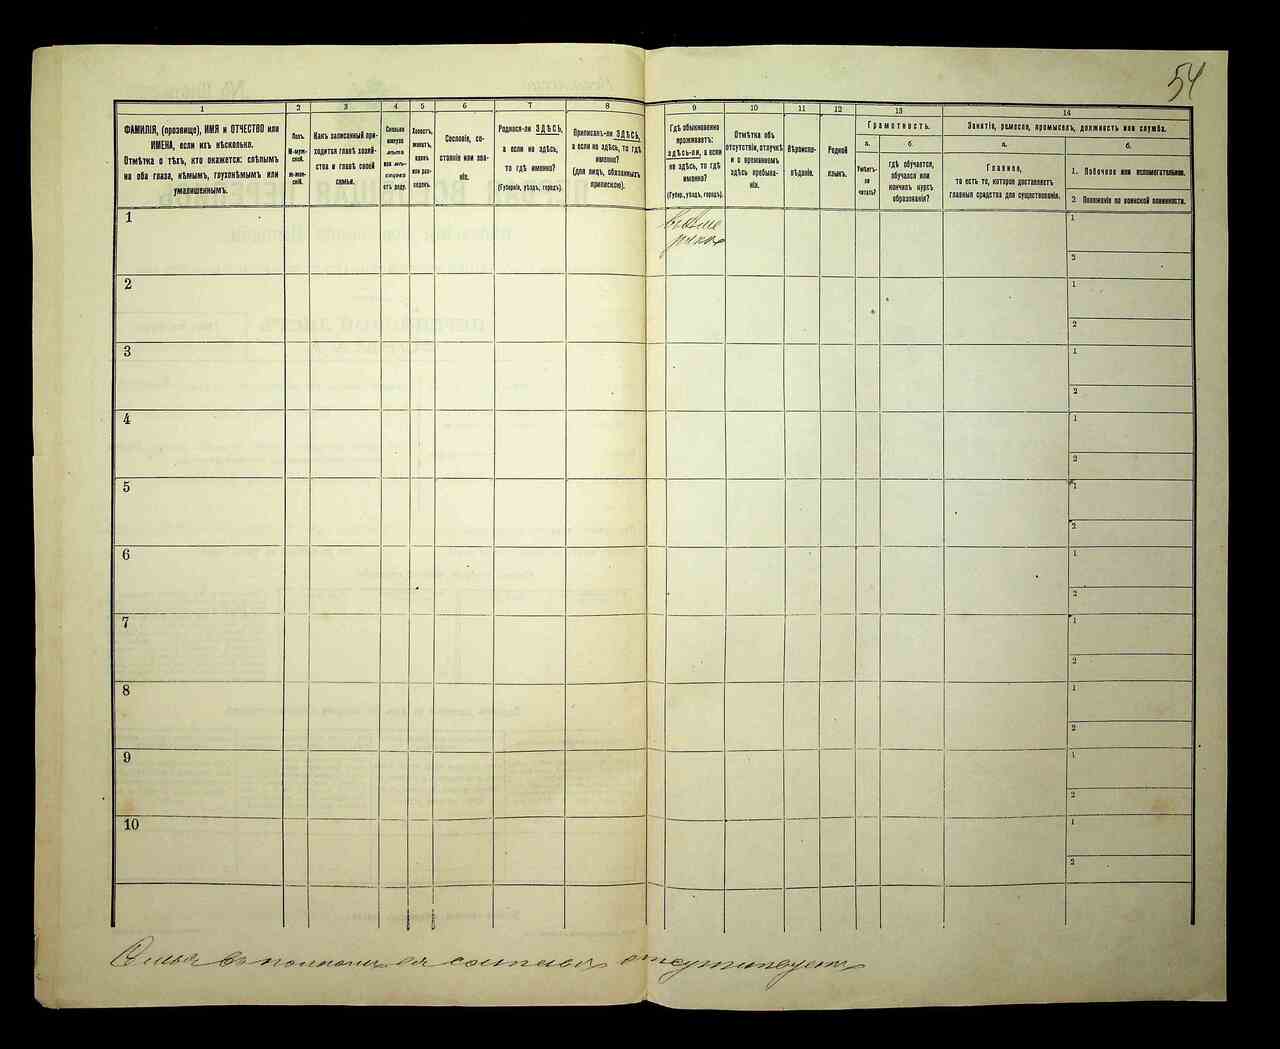 54
1
2
3
4
5
6
7
8
9
10
11
12
13
14
ФАМИЛІЯ, (прозвище), ИМЯ и ОТЧЕСТВО или
ИМЕНА, если ихъ нѣсколько.
Отмѣтка о тѣхъ, кто окажется: слѣпымъ
на оба глаза, нѣмымъ, глухонѣмымъ или
умалишеннымъ.
Полъ.
М-муж-
ской.
Ж-жен-
скій.
Какъ записанный при-
ходится главѣ хозяй-
ства и главѣ своей
семьи.
Сколько
минуло
лѣтъ
или мѣ-
сяцевъ
отъ роду.
Холостъ,
женатъ,
вдовъ
или раз-
веденъ.
Сословіе, со-
стояніе или зва-
ніе.
Родился-ли ЗДѢСЬ,
а если не здѣсь,
то гдѣ именно?
(Губернія, уѣздъ, городъ).
Приписанъ-ли ЗДѢСЬ,
а если не здѣсь, то гдѣ
именно?
(для лицъ, обязанныхъ
припискою).
Гдѣ обыкновенно
проживаетъ:
здѣсь-ли, а если
не здѣсь, то гдѣ
именно?
(Губер., уѣздъ, городъ).
Отмѣтка объ
отсутствіи, отлучкѣ
и о временномъ
здѣсь пребыва-
ніи.
Вѣроиспо-
вѣданіе.
Родной
языкъ.
Грамотность.
а.
б.
Умѣетъ-
ли
читать?
гдѣ обучается,
обучался или
кончилъ курсъ
образованія?
Занятіе, ремесло, промыселъ, должность или служба.
а.
б.
Главное,
то есть то, которое доставляетъ
главныя средства для существованія.
1. Побочное или вспомогательное.
2 Положеніе по воинской повинности.
1
1
2
2
1
2
3
1
2
4
1
2
5
1
2
6
1
2
7
1
2
8
1
2
9
1
2
10
1
2
Семья въ полномъ составѣ отсутствуетъ